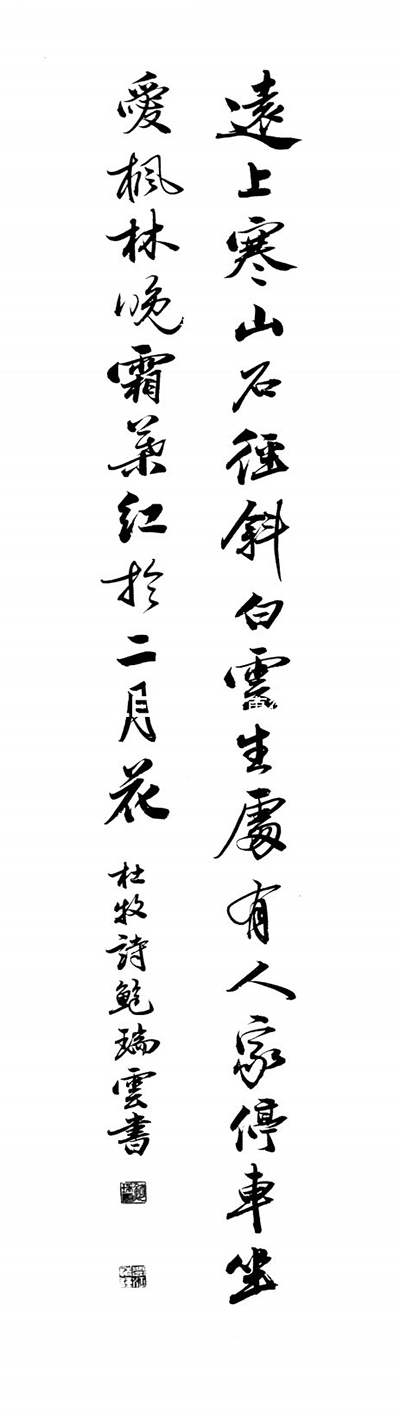 遠上寒山石徑斜白雲生處有人家停車坐
愛楓林晚霜葉紅於二月花
杜牧詩鮑瑞雲書